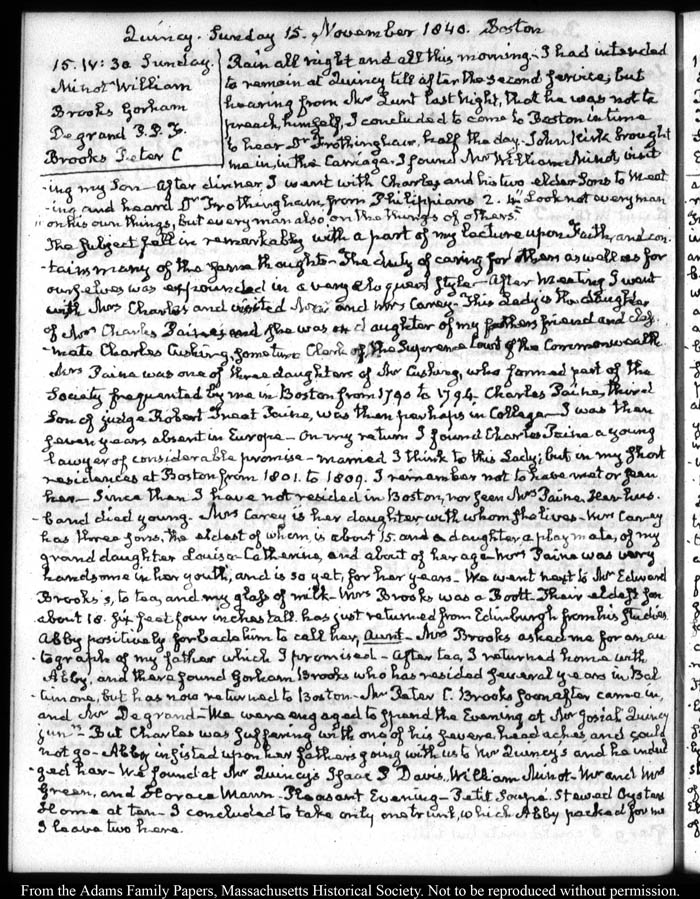 Quincy. Sunday 15. November 1840. Boston
15. IV: 30 Sunday.
Minot William
Brooks Gorham
Degrand P. P. F.
Brooks Peter C
Rain all night and all this morning. I had intended
to remain at Quincy till after the second service; but
hearing from Mr Lunt last night, that he was not to
preach, himself, I concluded to come to Boston in time
to hear Dr Frothingham, half the day. John Kirk brought
me in, in the Carriage. I found Mr William Minot, visit
-ing my Son. After dinner, I went with Charles and his two elder Sons to meet
-ing and heard Dr Frothingham from Philippians 2. 4. Look not every man
"on his own things, but every man also on the things of others."
The subject fell in remarkably with a part of my lecture upon Faith, and con
-tains many of the same thoughts. The duty of caring for others as well as for
ourselves was expounded in a very eloquent style. After Meeting I went
with Mrs Charles and visited Mr and Mrs Carey. This Lady is the daughter
of Mrs Charles Paine, and she was a daughter of my father's friend and class
-mate Charles Cushing, sometime Clerk of the Supreme Court of the Commonwealth
Mrs Paine was one of three daughters of Mr Cushing, who formed part of the
Society frequented by me in Boston from 1790 to 1794. Charles Paine, third
Son of judge Robert Treat Paine, was then perhaps in College. I was then
seven years absent in Europe. On my return I found Charles Paine a young
lawyer of considerable promise. married I think to this Lady; but in my short
residences at Boston from 1801. to 1809. I remember not to have met or seen
her. Since then I have not resided in Boston, nor seen Mrs Paine. Her hus
-band died young. Mrs Carey is her daughter with whom she lives. Mrs Carey
has three sons, the eldest of whom is about 15. and a daughter, a playmate, of my
grand daughter Louisa Catherine, and about of her age. Mrs Paine was very
handsome in her youth, and is so yet, for her years. We went next to Mr Edward
Brooks's, to tea, and my glass of milk. Mrs Brooks was a Boott. Their eldest son
about 18. six feet four inches tall has just returned from Edinburgh from his studies
Abby positively forbade him to call her, Aunt. Mrs Brooks asked me for an au
-tograph of my father which I promised. After tea, I returned home with
Abby, and there found Gorham Brooks who has resided several years in Bal
timore, but has now returned to Boston. Mr Peter C. Brooks soon after came in,
and Mr Degrand. We were engaged to spend the Evening at Mr Josiah Quincy
junr. But Charles was suffering with one of his severe headaches and could
not go. Abby insisted upon her father's going with us to Mr Quincy's and he indul
-ged her. We found at Mr Quincy's Isaac P Davis, William Minot. Mr and Mrs
Green, and Horace Mann. Pleasant Evening. Petit Soupé. Stewed Oysters
Home at ten. I concluded to take only one trunk, which Abby packed for me
I leave two here.
From the Adams Family Papers, Massachusetts Historical Society. Not to be reproduced without permission.